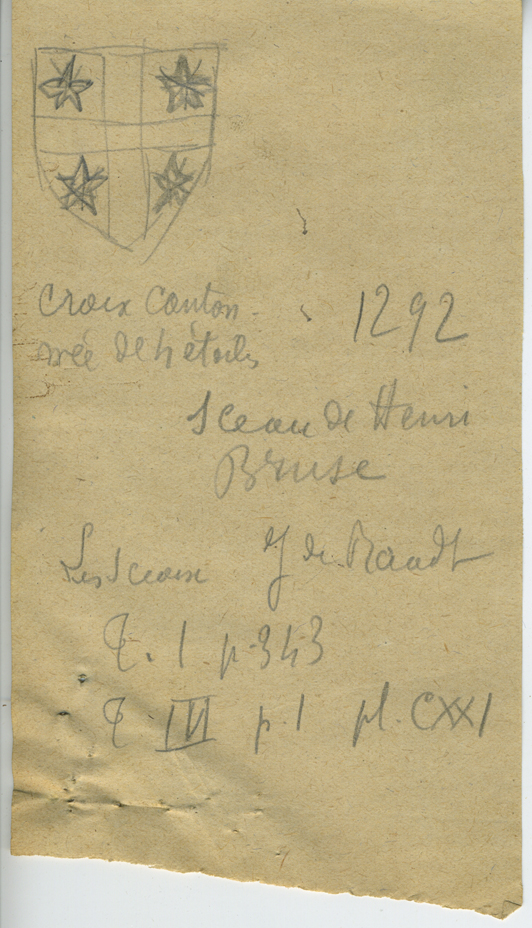 Croix canton
née de 4 étoiles
1292
Sceau de Henri
Bruse
Les Sceaux J de Raadt
T. I. p. 343
T IVI p. 1 pl. CXXI